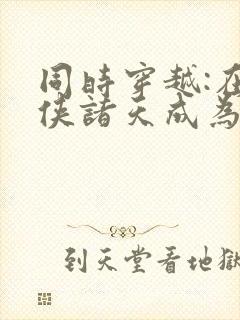 同時穿越:在
俠諸天成為
到天堂看地獄